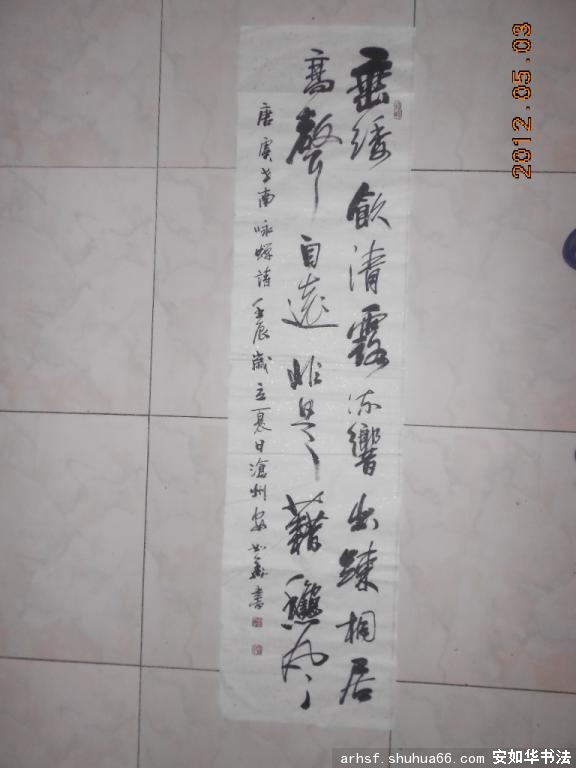 垂緌飲清露流響出疎桐居
高聲自遠非是藉穐風
唐虞世南咏蟬詩壬辰歲立夏日滄州安如華書
2012.05.03
arhsf.shuhua66.com 安如华书法